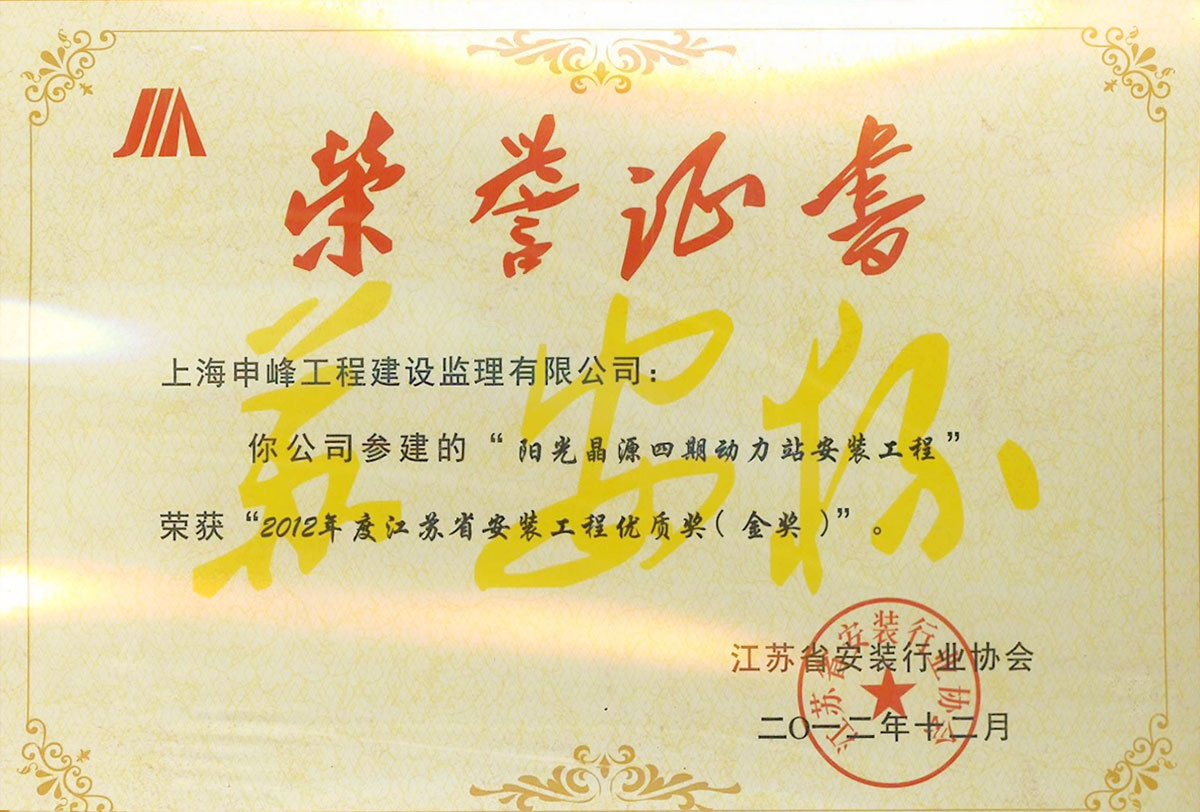 榮誉证書
苏安杯
上海申峰工程建设监理有限公司：
你公司参建的“阳光晶源四期动力站安装工程”
荣获“2012年度江苏省安装工程优质奖（金奖）”。
江苏省安装行业协会
二〇一二年十二月
江苏省安装行业协会